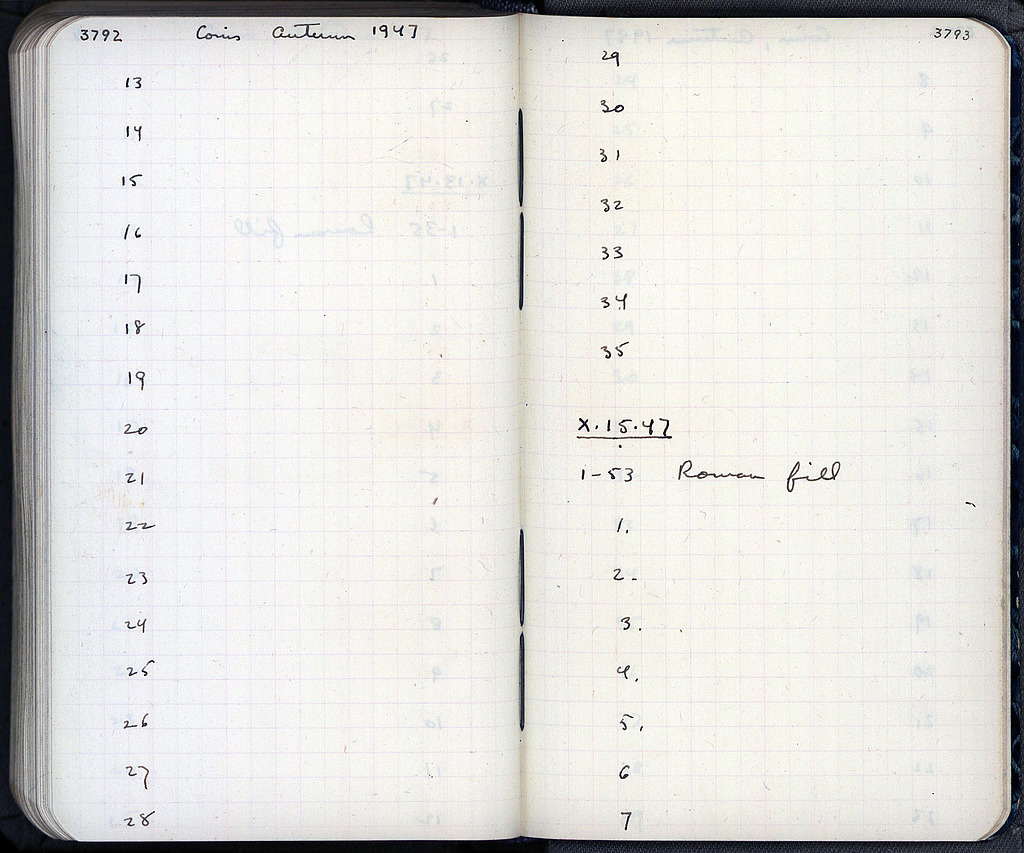 3792 Coins Autumn 1947
13
14
15
16
17
18
19
20
21
22
23
24
25
26
27
28
3793
29
30
31
32
33
34
35
X.15.47
1-53 Roman fill
1.
2.
3.
4.
5.
6
7